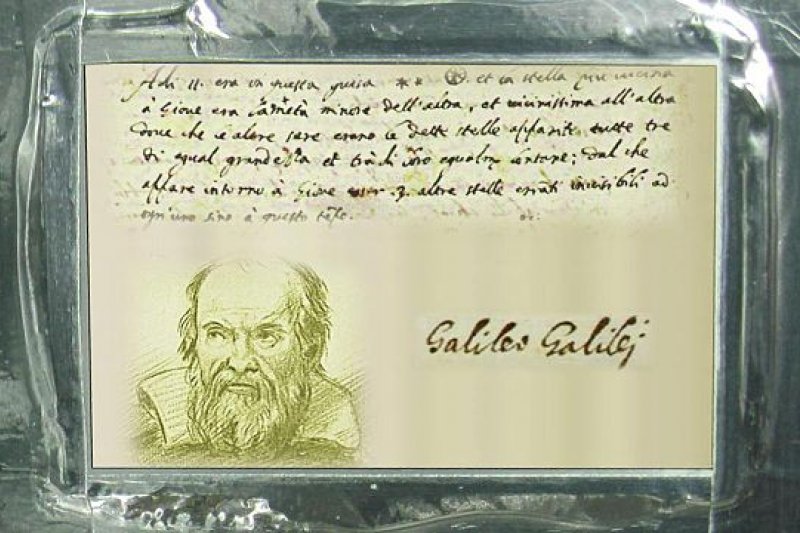 Adi 11. era in questa guisa ** et la stella più vicina
à Giove era la metà minore dell'altra, et vicinissima all'altra
dove che le altre sere erano le dette stelle apparite tutte tre
di egual grandezza et trà di loro equalm. lontane; dal che
appare intorno à Giove esser .3. altre stelle erranti invisibili ad
ogn'uno sino à questo tẽpo.
Galileo Galilej